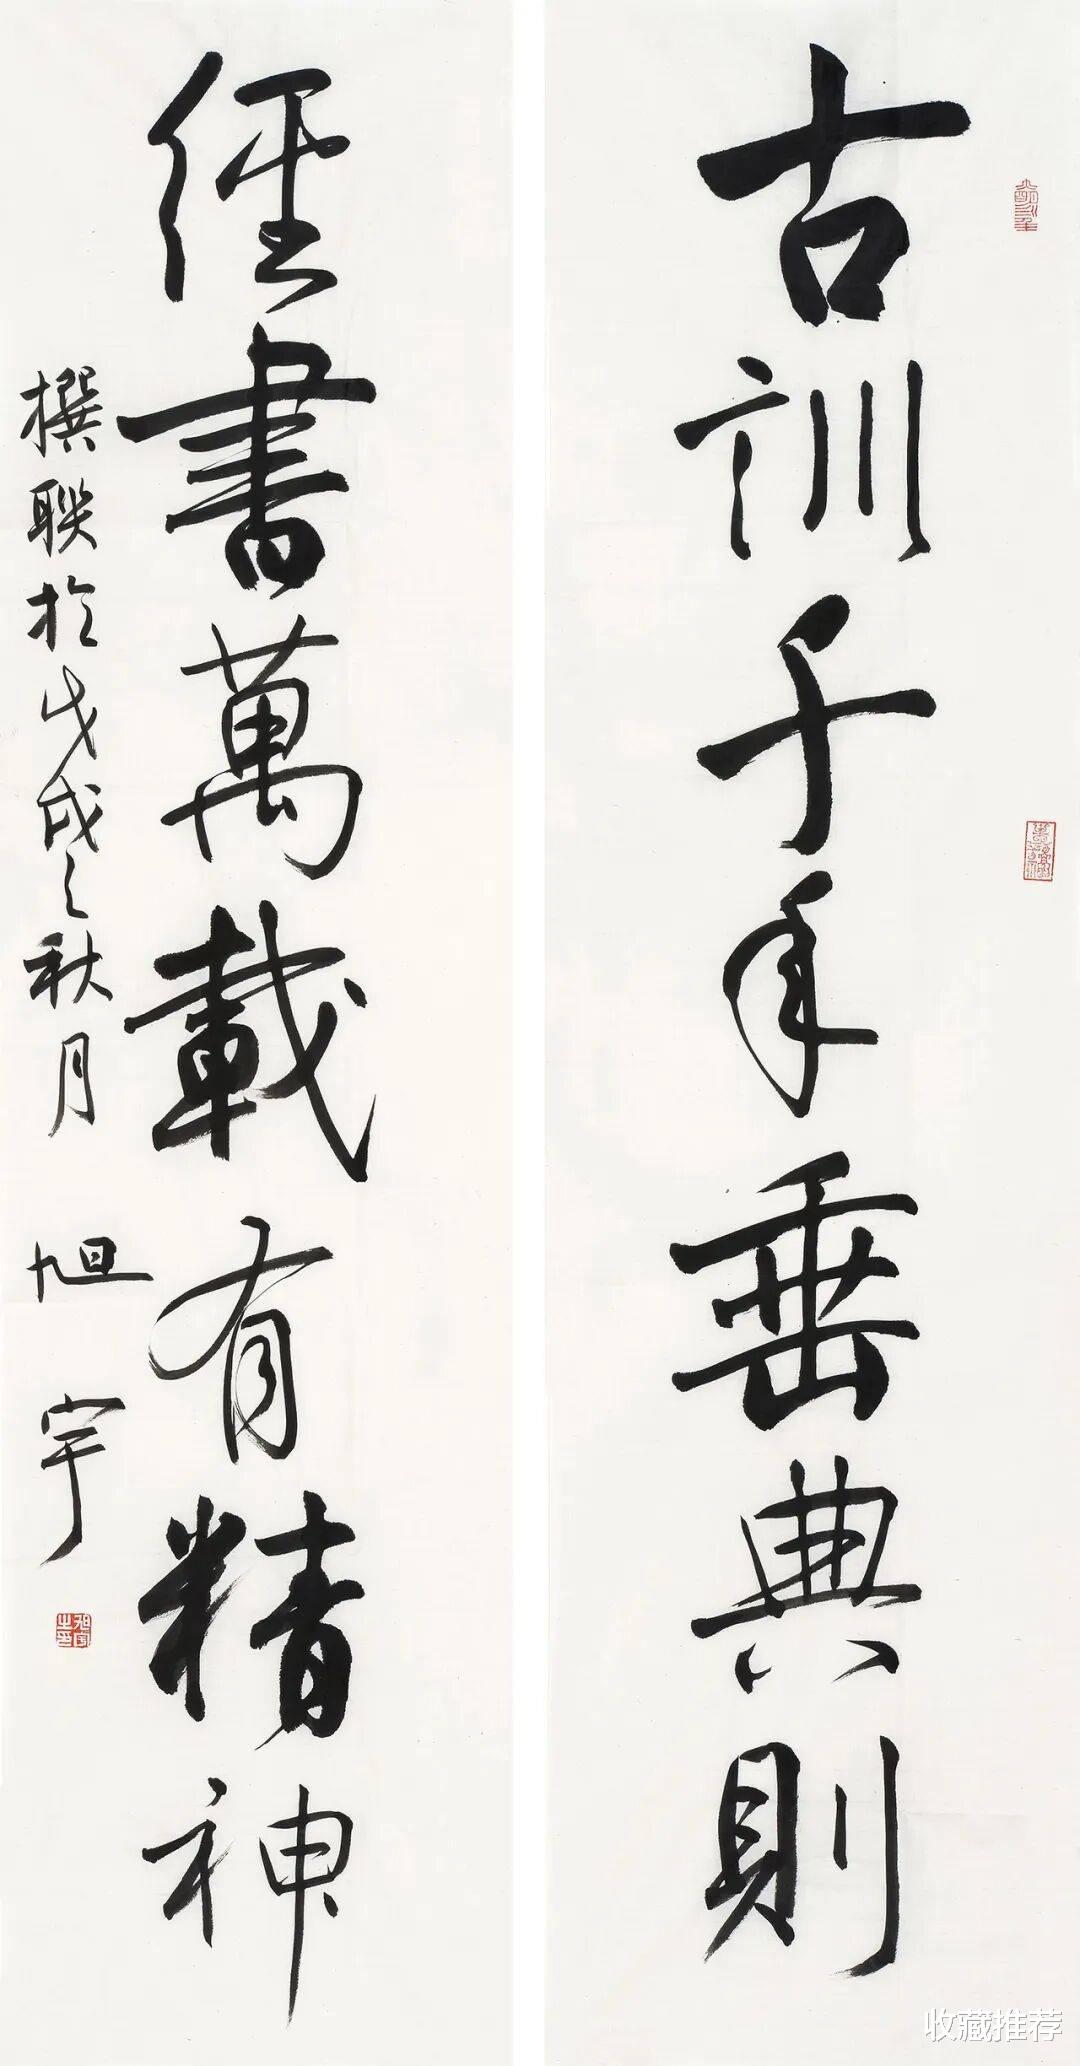 古訓千年垂典則
經書萬載有精神
撰聯於戊戌之秋月 旭宇
旭宇之印
收藏推荐